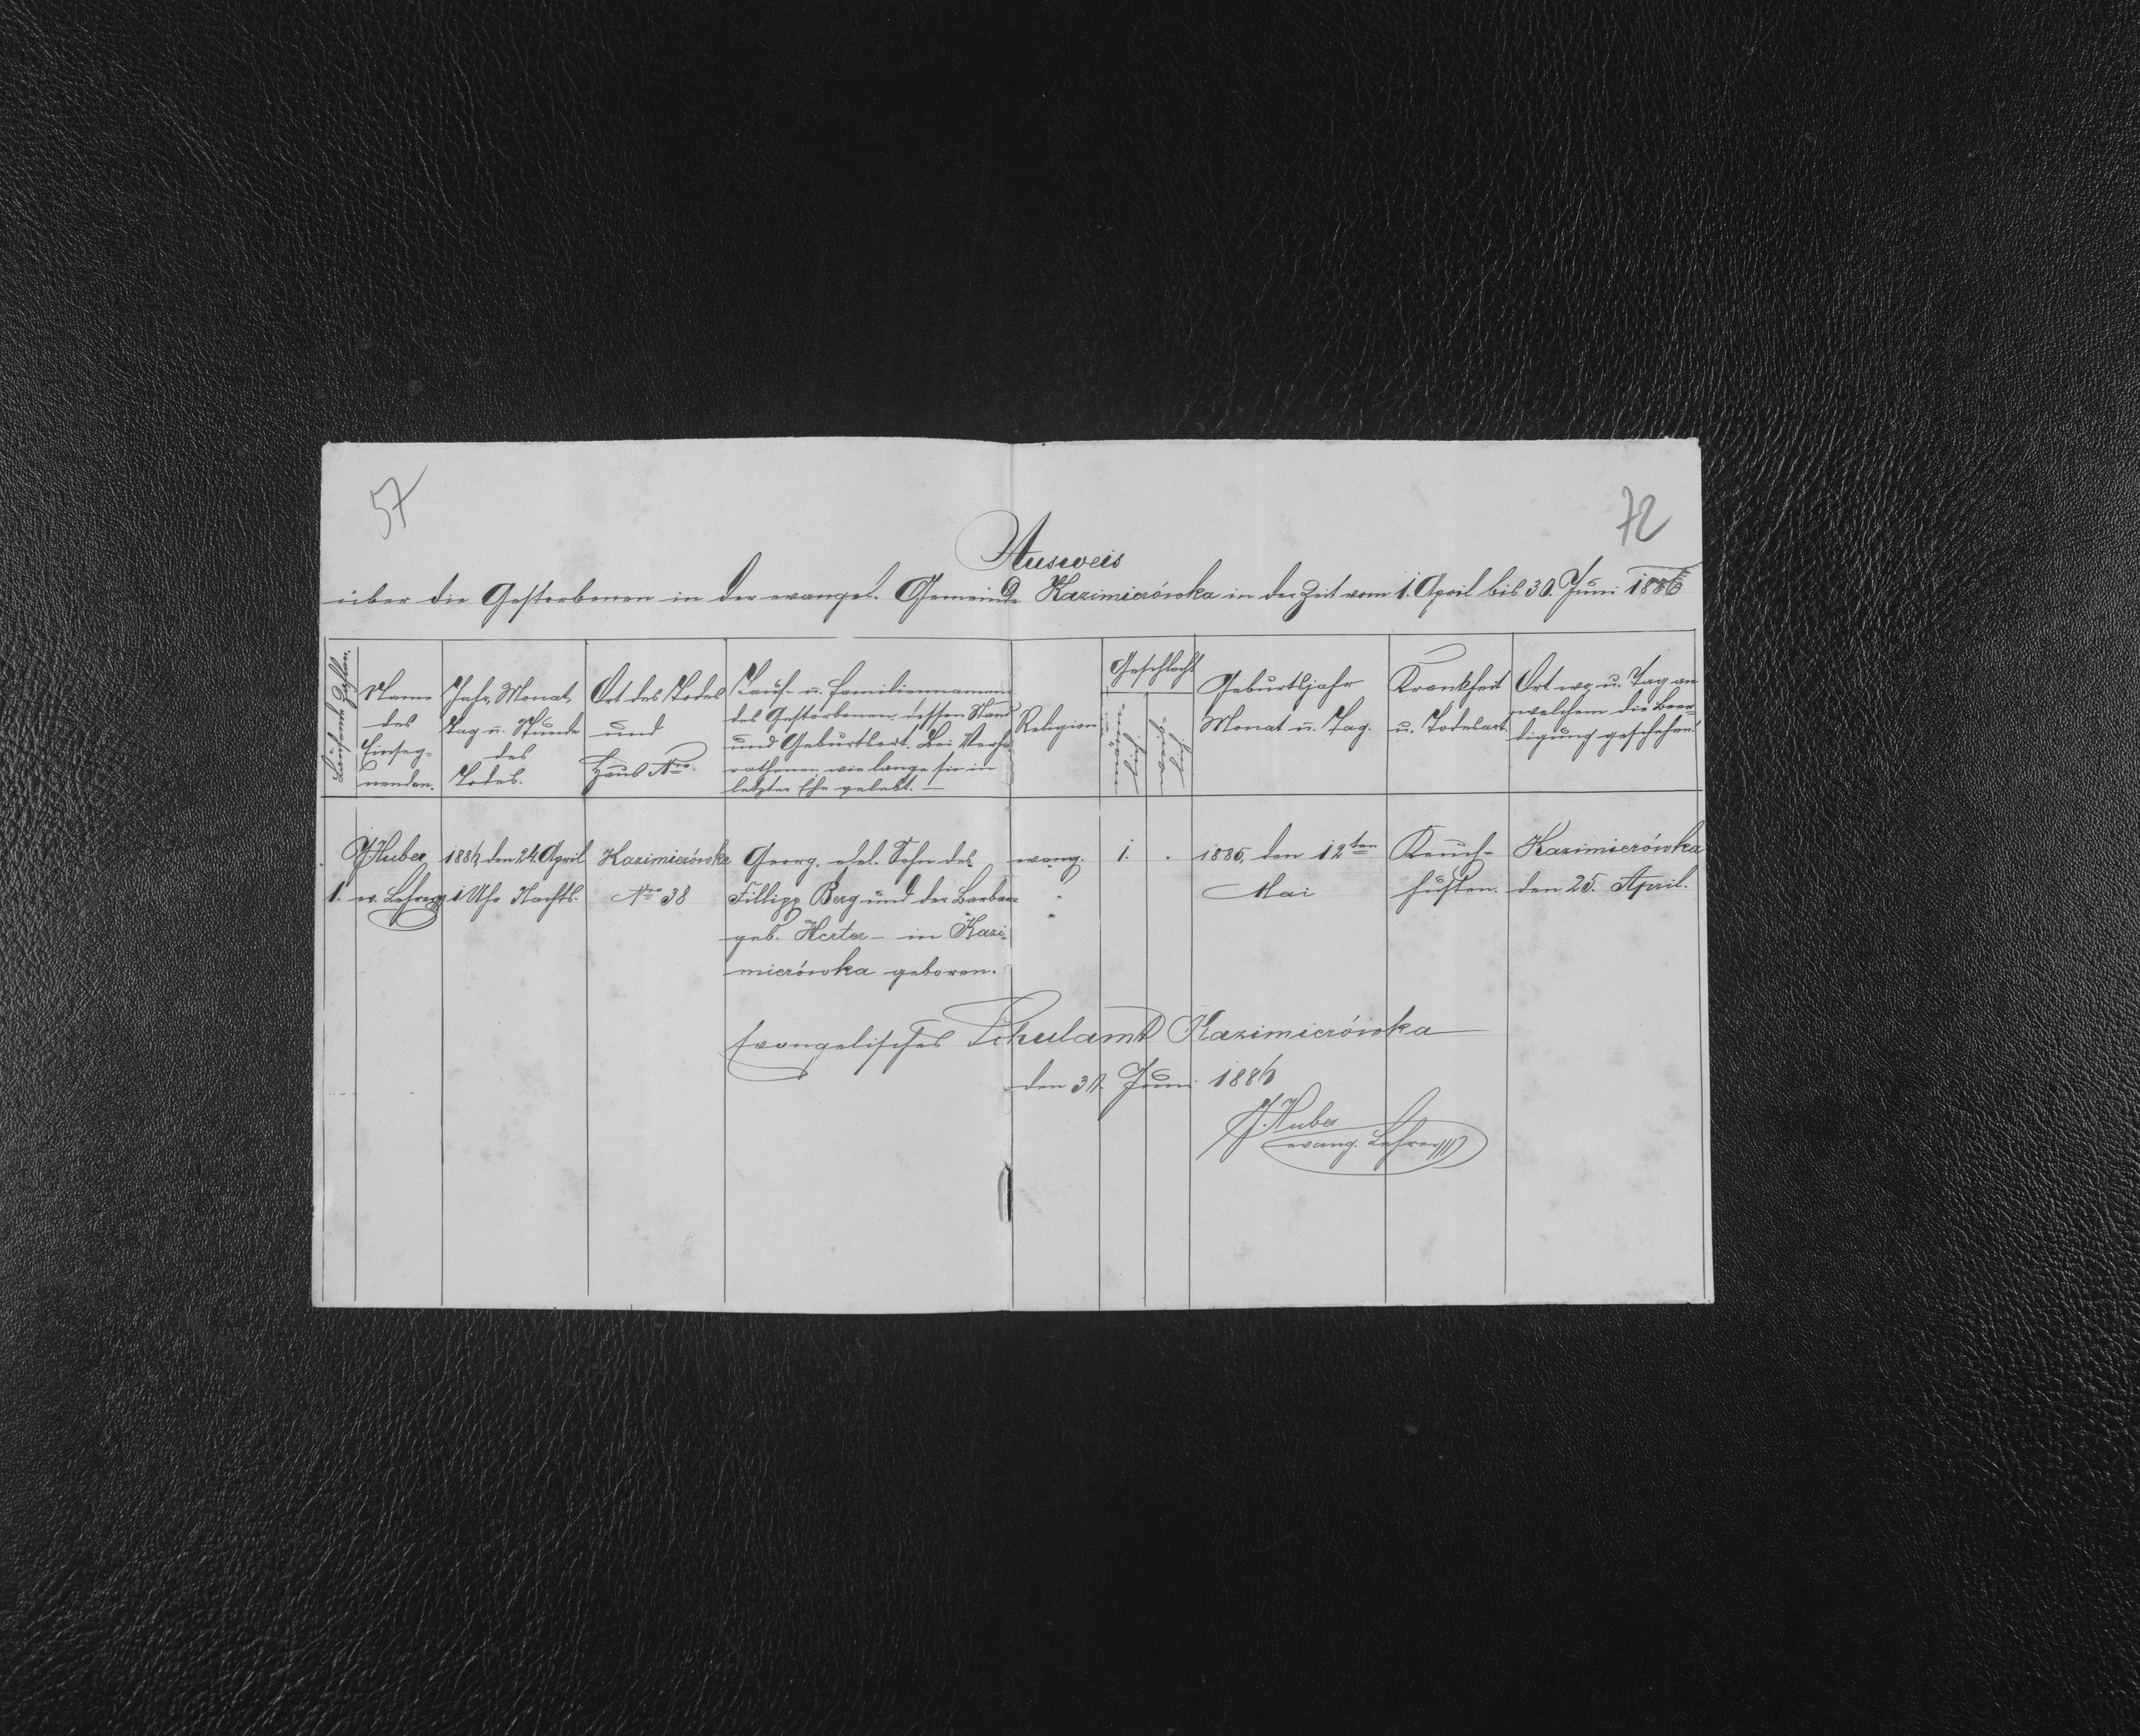 57
72
Ausweis
über die Gestorbenen in der evangel. Gemeinde Kazimierówka in der Zeit vom 1. April bis 30. Juni 1886
Laufende Zahlen.
Name
des
Einseg-
nenden.
Jahr, Monat,
Tag u. Stunde
des
Todes.
Ort des Todes
und
Haus Nro.
Tauf- u. Familiennamen
des Gestorbenen, dessen Stand
und Geburtsort. Bei Verhei-
rathenen, wie lange sie in
letzter Ehe gelebt. —
Religion
Geschlecht
männ-
lich
weib-
lich
Geburtsjahr
Monat u. Tag.
Krankheit
u. Todesart.
Ort wo, u. Tag an
welchem die Beer-
digung geschehen.
1.
J. Huber
ev. Lehrer
1886 den 24. April
1 Uhr Nachts.
Kazimierówka
Nro 38
Georg, ehel. Sohn des
Fillipp Berg und der Barbara
geb. Herter – in Kazi-
mierówka geboren.
evang.
1.
.
1885, den 12ten
Mai
Keuch-
husten.
Kazimierówka
den 25. April.
Evangelisches Schulamt Kazimierówka
den 30. Juni 1886
J. Huber
evang. Lehrer